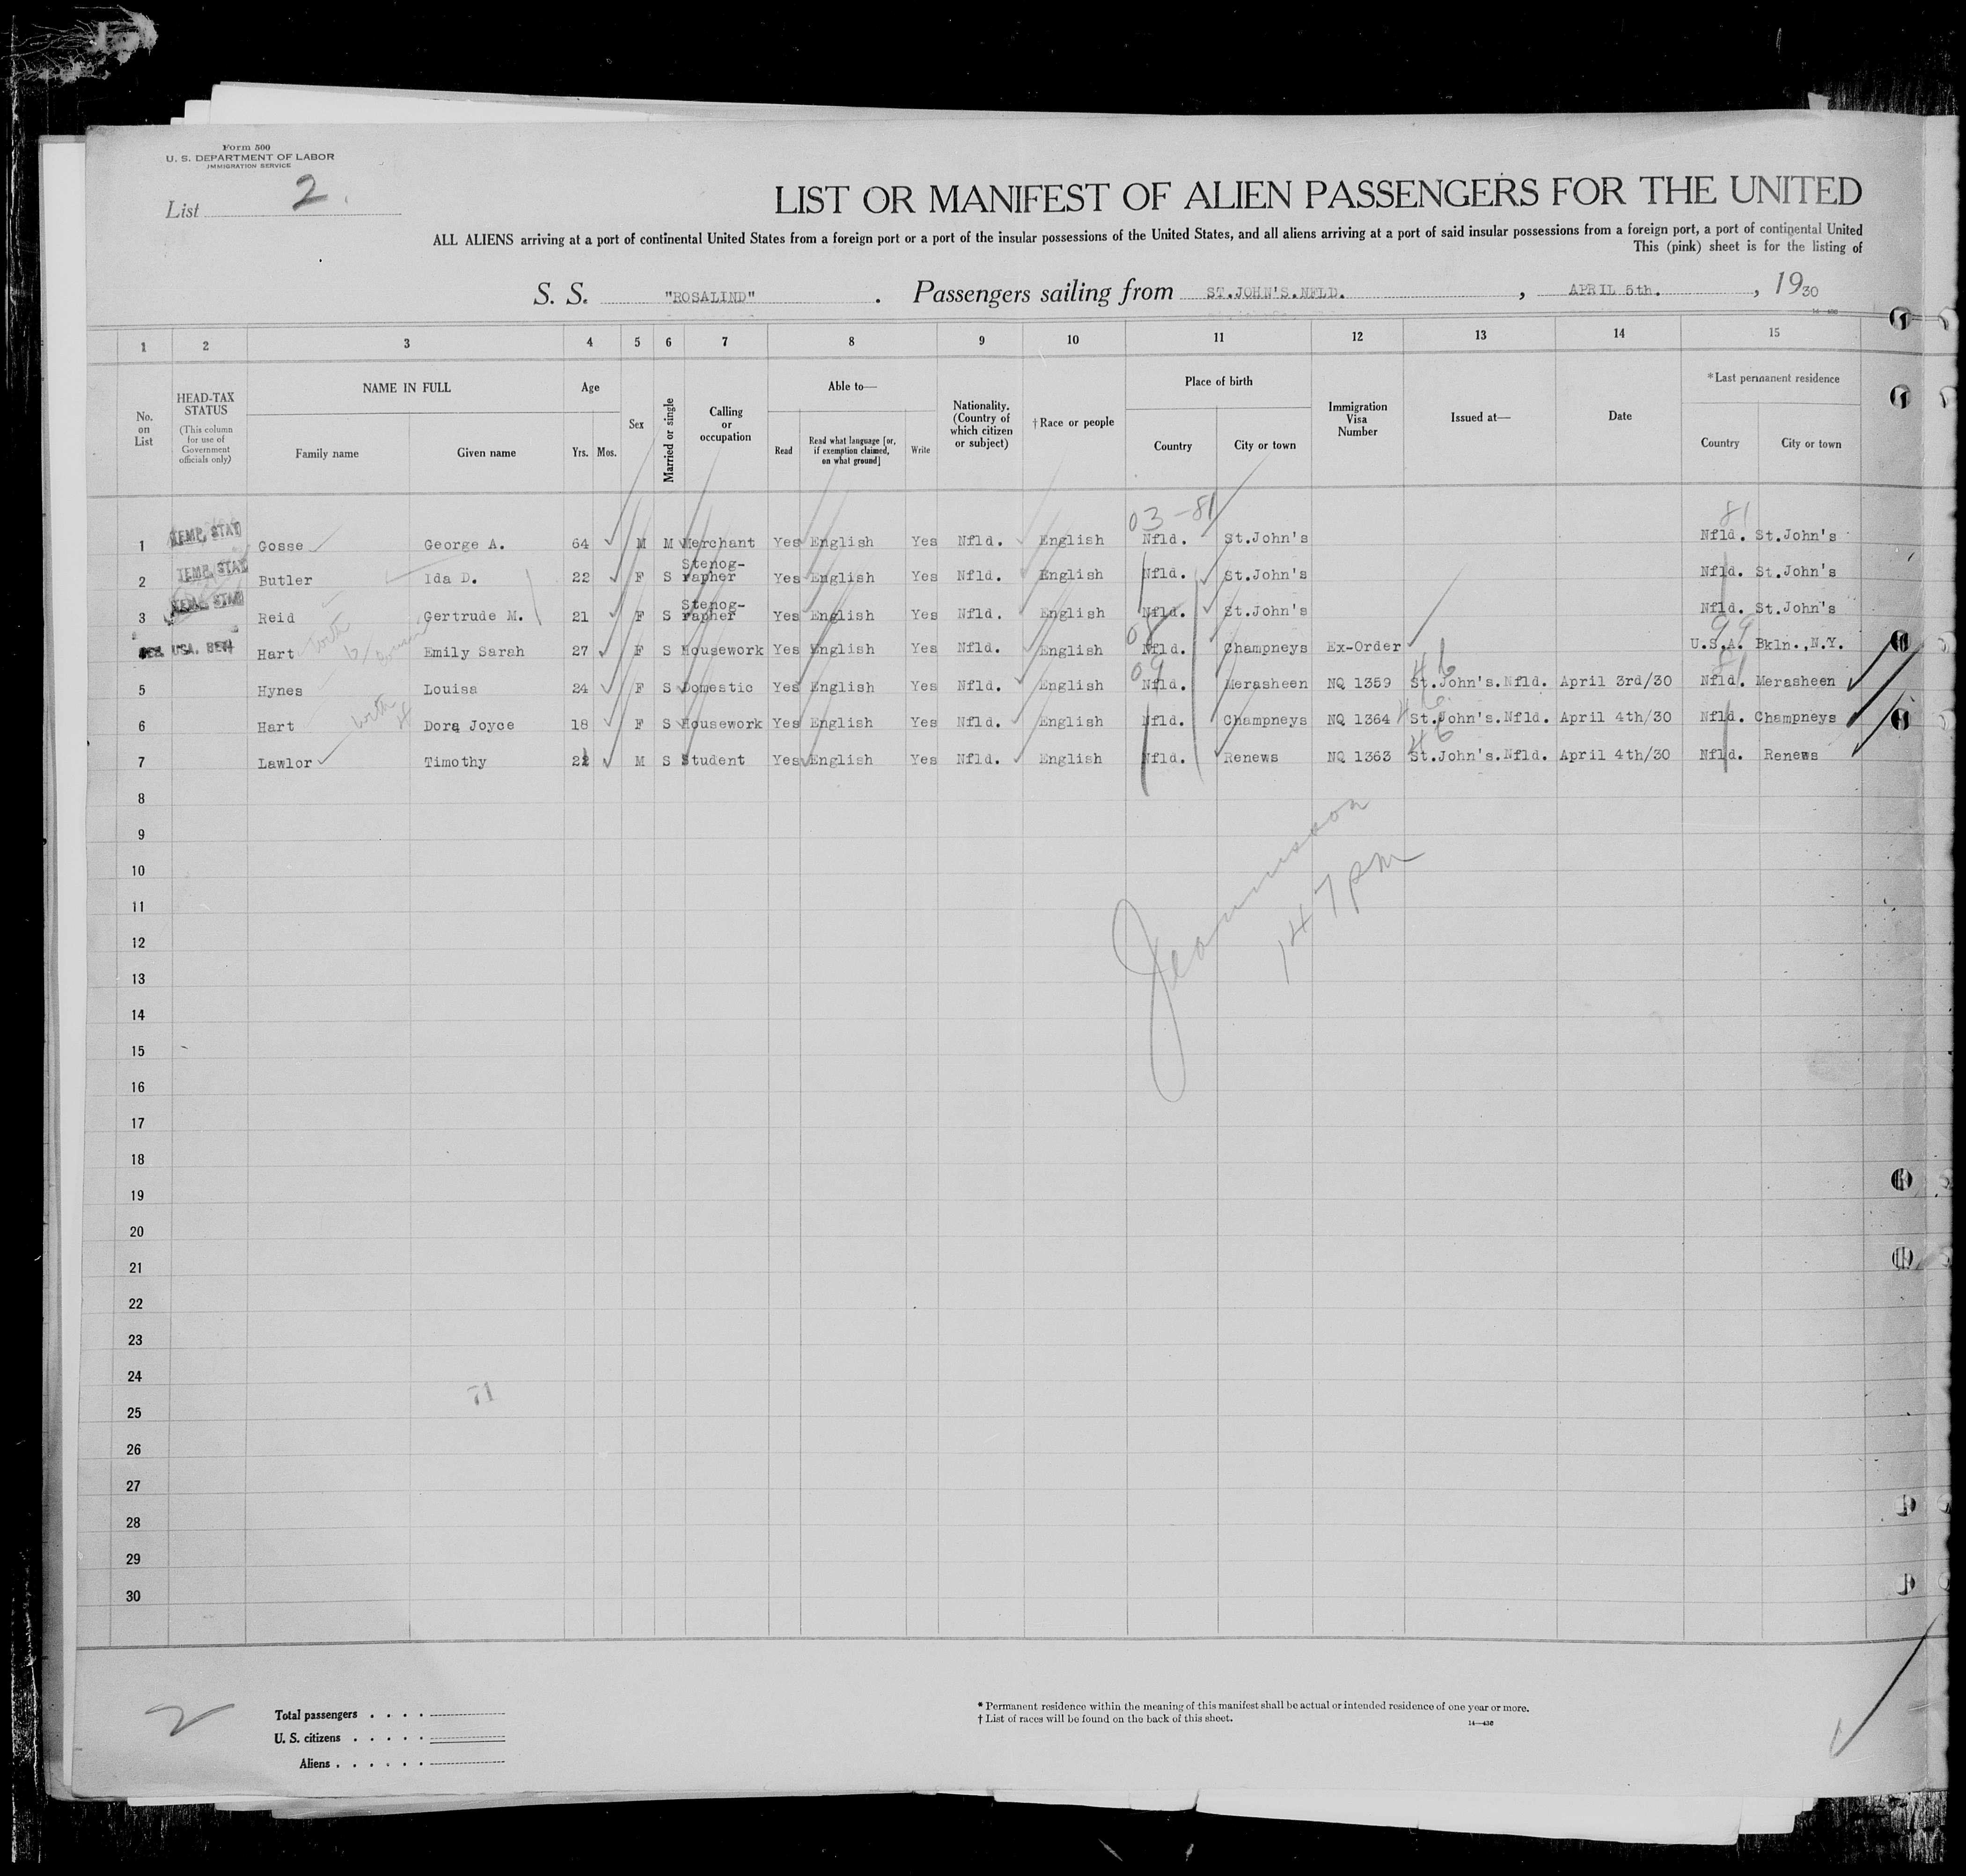 Form 500
U. S. DEPARTMENT OF LABOR
IMMIGRATION SERVICE
List 2.
LIST OR MANIFEST OF ALIEN PASSENGERS FOR THE UNITED
ALL ALIENS arriving at a port of continental United States from a foreign port or a port of the insular possessions of the United States, and all aliens arriving at a port of said insular possessions from a foreign port, a port of continental United
This (pink) sheet is for the listing of
S. S. "ROSALIND". Passengers sailing from ST.JOHN'S.NFLD., APRIL 5th., 1930
1 2 3 4 5 6 7 8 9 10 11 12 13 14 15
No. on List
HEAD-TAX STATUS
(This column for use of Government officials only)
NAME IN FULL
Family name
Given name
Age
Yrs. Mos.
Sex
Married or single
Calling or occupation
Able to—
Read
Read what language [or, if exemption claimed, on what ground]
Write
Nationality. (Country of which citizen or subject)
†Race or people
Place of birth
Country
City or town
Immigration Visa Number
Issued at—
Date
*Last permanent residence
Country
City or town
03 -81 81
1 TEMP. STAY Gosse George A. 64 M M Merchant Yes English Yes Nfld. English Nfld. St.John's Nfld. St.John's
2 TEMP. STAY Butler Ida D. 22 F S Stenog-rapher Yes English Yes Nfld. English Nfld. St.John's Nfld. St.John's
3 TEMP. STAY Reid Gertrude M. 21 F S Stenog-rapher Yes English Yes Nfld. English Nfld. St.John's Nfld. St.John's
USA. Hart Emily Sarah 27 F S Housework Yes English Yes Nfld. English Nfld. Champneys Ex-Order 99 U.S.A. Bkln.,N.Y.
5 Hynes Louisa 24 F S Domestic Yes English Yes Nfld. English 09 Nfld. Merasheen NQ 1359 46 St.John's.Nfld. April 3rd/30 81 Nfld. Merasheen
6 Hart with Dora Joyce 18 F S Housework Yes English Yes Nfld. English Nfld. Champneys NQ 1364 46 St.John's.Nfld. April 4th/30 Nfld. Champneys
7 Lawlor Timothy M S Student Yes English Yes Nfld. English Nfld. Renews NQ 1363 46 St.John's.Nfld. April 4th/30 Nfld. Renews
8
9
10
11
12
13
14
15
16
17
18
19
20
21
22
23
24
25
26
27
28
29
30
147pm
2
Total passengers . . . .
U. S. citizens . . . . .
Aliens . . . . . .
* Permanent residence within the meaning of this manifest shall be actual or intended residence of one year or more.
† List of races will be found on the back of this sheet.
14—430